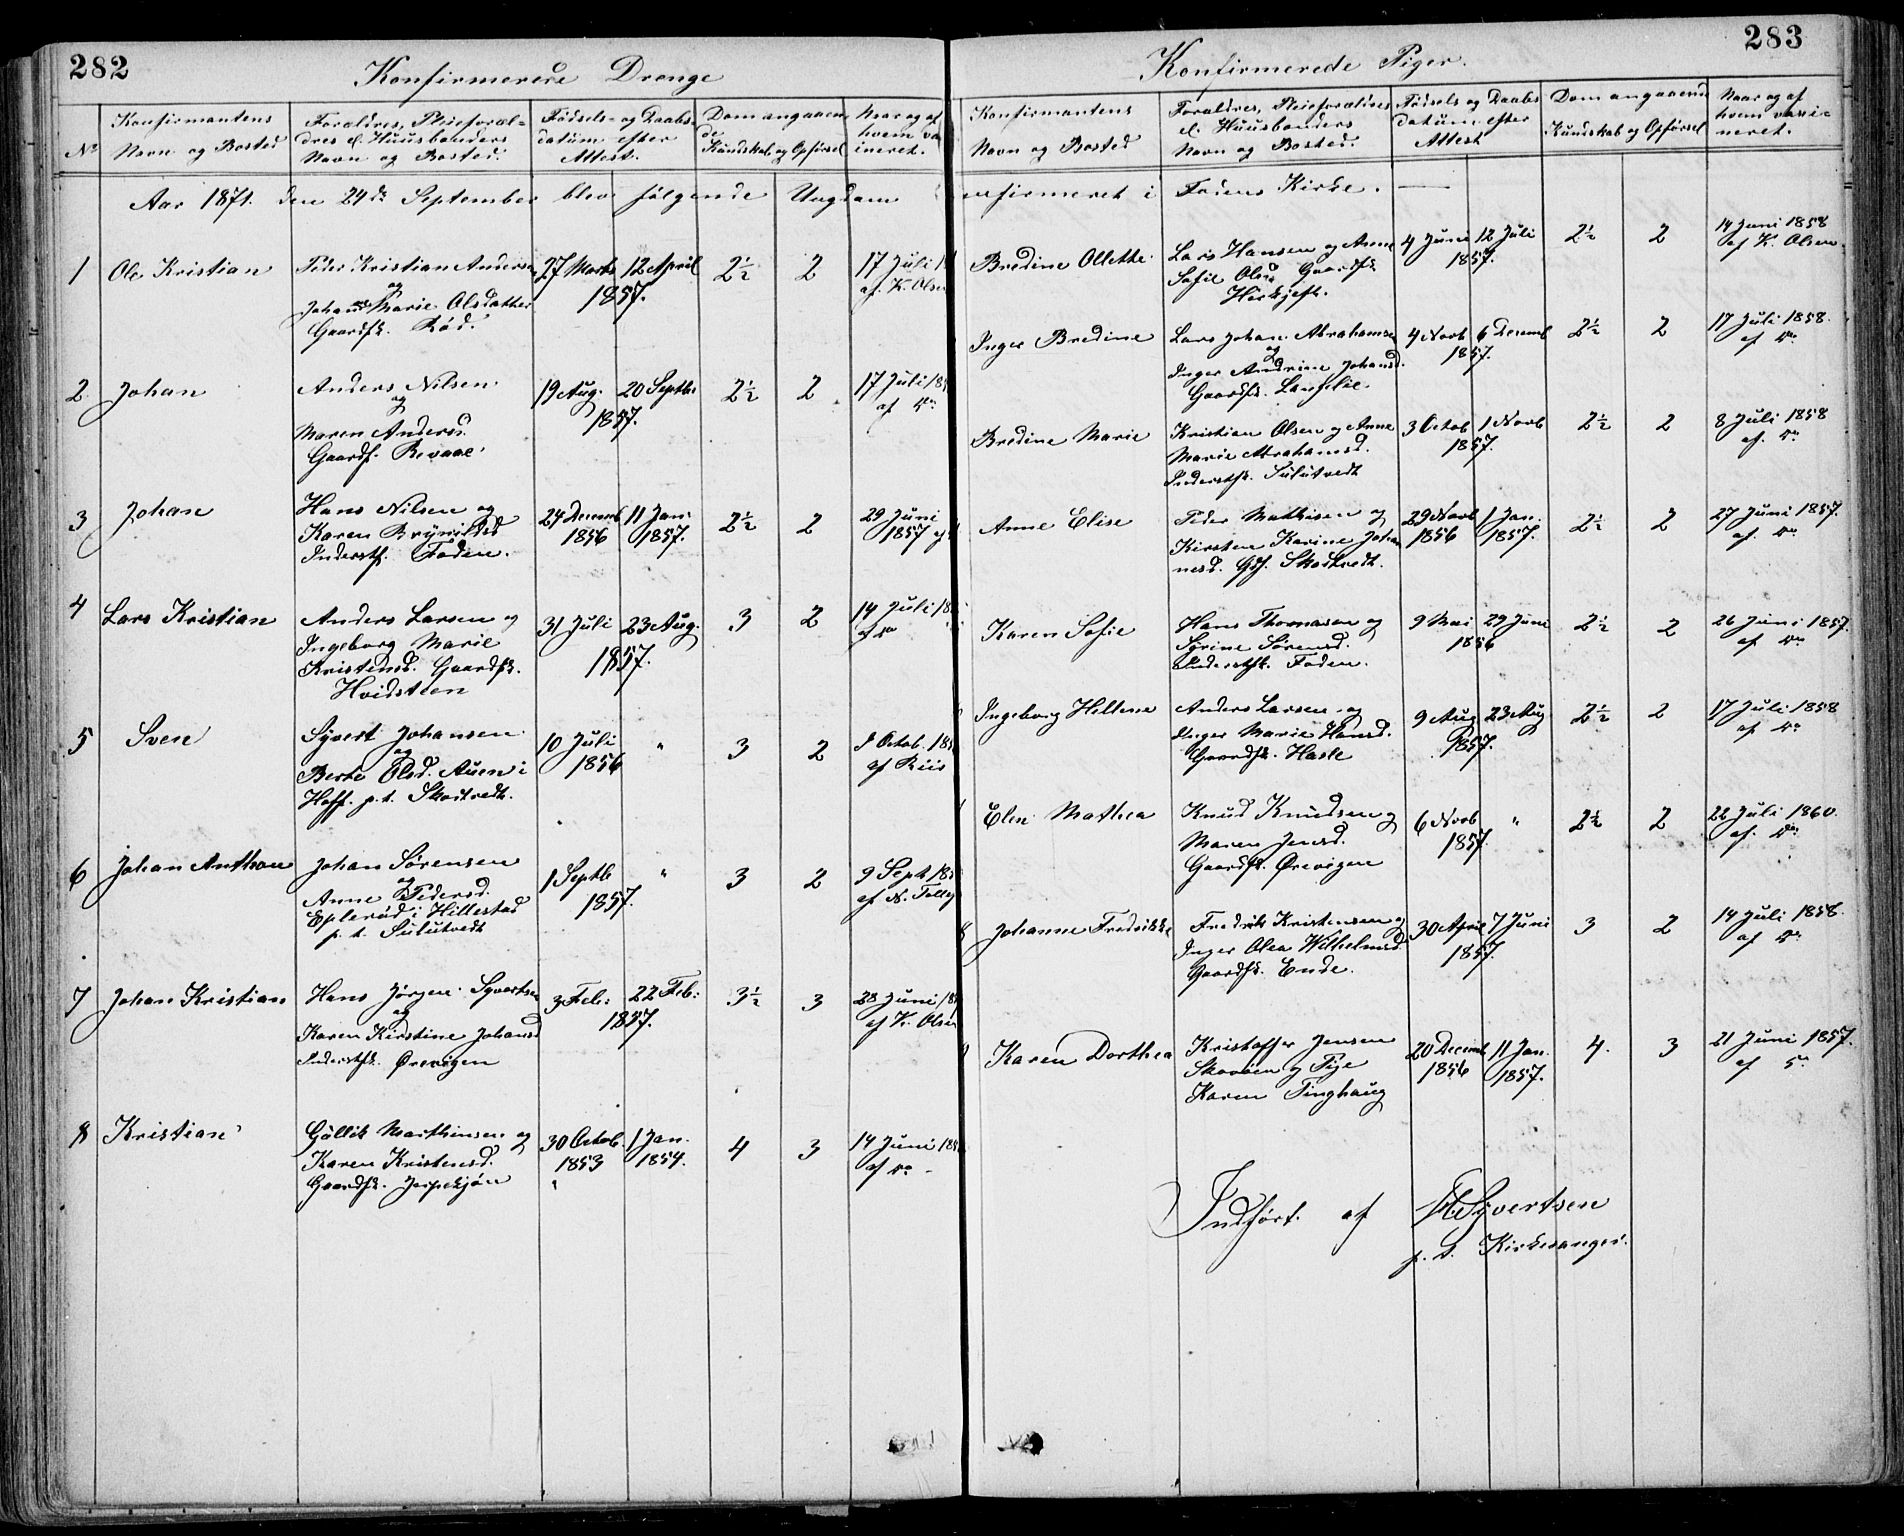 282
Konfirmerede Drenge
No
Konfirmantens
Navn og Bosted
Forældres, Pleieforæl=
dres el. Huusbonders
Navn og Bosted.
Fødsels- og Daabs-
datum efter
Attest.
Dom angaaen-
de
Kundskab og Opførsel
Naar og af
hvem va
ineret.
Aar 1871. den 24de September blev følgende Ungdom
1
Ole Kristian
Peder Kristian Anders
og
Johanne Marie Olsdatter
Gaardfk. Rød.
27 Marts 12 April
1857.
2½ 2
17 Juli
af K. Olsen
2
Johan
Anders Nilsen
og
Maren Andersd.
Gaardf. Revaae
19 Aug. 20 Septbr.
1857.
2½ 2
17 Juli 185
af do
3
Johan
Hans Nilsen og
Karen Brynildsd
Inderstf. Foden.
24 Decemb 11 Jan.
1856 1857.
2½ 2
29 Juni
1857
4
Lars Kristian
Anders Larsen og
Ingeborg Marie
Kristensd. Gaardfk.
Hvidsteen
31 Juli 23 Aug.
1857.
3 2
14 Juli 185
af do
5
Sven
Syvert Johansen
og
Berte Olsd. Auen i
Hoff. p. t. Skostvedt.
10 Juli "
1856
3 2
Octob. 185
af Riis
6
Johan Anthon
Johan Sørensen
og
Anne Pedersd.
Eplerød i Hillestad
p. t. Sulutvedt
1 Septb "
1857.
3 2
9 Sept 185
af N.
7
Johan Kristian
Hans Jørgen Syvertsen
og
Karen Kirstine Johansd
Inderstfk. Ørevigen
3 Feb: 22 Feb:
1857.
3½ 3
28 Juni 185
af K. Olsen
8
Kristian
Gullik Marthinsen og
Karen Kristensd.
Gaardfk.
30 Octob. 1 Jan.
1853 1854.
4 3
14 Juni 185
af do
283
Konfirmerede Piger.
Konfirmantens
Navn og Bosted
Forældres, Pleieforældres
el. Huusbonders
Navn og Bosted.
Fødsels og Daabs
datum efter
Attest
Dom angaaend
Kundskab og Opførsel
Naar og af
hvem vaxi-
neret.
onfirmeret i Fodens Kirke.
Bredine Ollette.
Lars Hansen og Anne
Sofie Olsd. Gaardfk
4 Juni 12 Juli
1857.
2½ 2
14 Juni 1858
af K. Olsen
Inger Bredine
Lars Johan Abrahamsen
og
Inger Andrine Johansd.
Gaardfk. Langelie.
4 Novb 6 Decemb
1857.
2½ 2
17 Juli 1858.
af do
Bredine Marie
Kristian Olsen og Anne
Marie Abrahamsd.
Inderstfk. Sulutvedt
3 Octob 1 Novb
1857.
2½ 2
8 Juli 1858
af. do
Anne Elise
Peder Mathisen og
Kirsten Karine Johan
nesd. Gdf. Skostvedt.
29 Novb 1 Jan.
1856 1857.
2½ 2
27 Juni 1857.
af. do
Karen Sofie
Hans Thomasen og
Syrine Sørensd.
Inderstfk. Foden.
9 Mai 29 Juni
1856
2½ 2
26 Juni 1857.
af do
Ingeborg Hellene
Anders Larsen og
Inger Marie Hansd.
Gaardfk. Hasle
9 Aug 23 Aug
1857.
2½ 2
17 Juli 1858
af do
Elen Mathea
Knud Knudsen og
Maren Jensd.
Gaardfk. Ørevigen
6 Novb "
1857.
2½ 2
22 Juli 1860.
af. do
8
Johanne Fredrikke
Fredrik Kristensen og
Inger Olea Wilhelmsd
Gaardfk. Ende.
30 April 7 Juni
1857.
3 2
14 Juli 1858.
af do
Karen Dorthea
Kristoffer Jensen
Skovøen og Pige
Karen Tinghaug
20 Decemb 11 Jan.
1856 1857.
4. 3
21 Juni 1857.
af do
Indført af H Syvertsen
p. t. Kirkesanger.